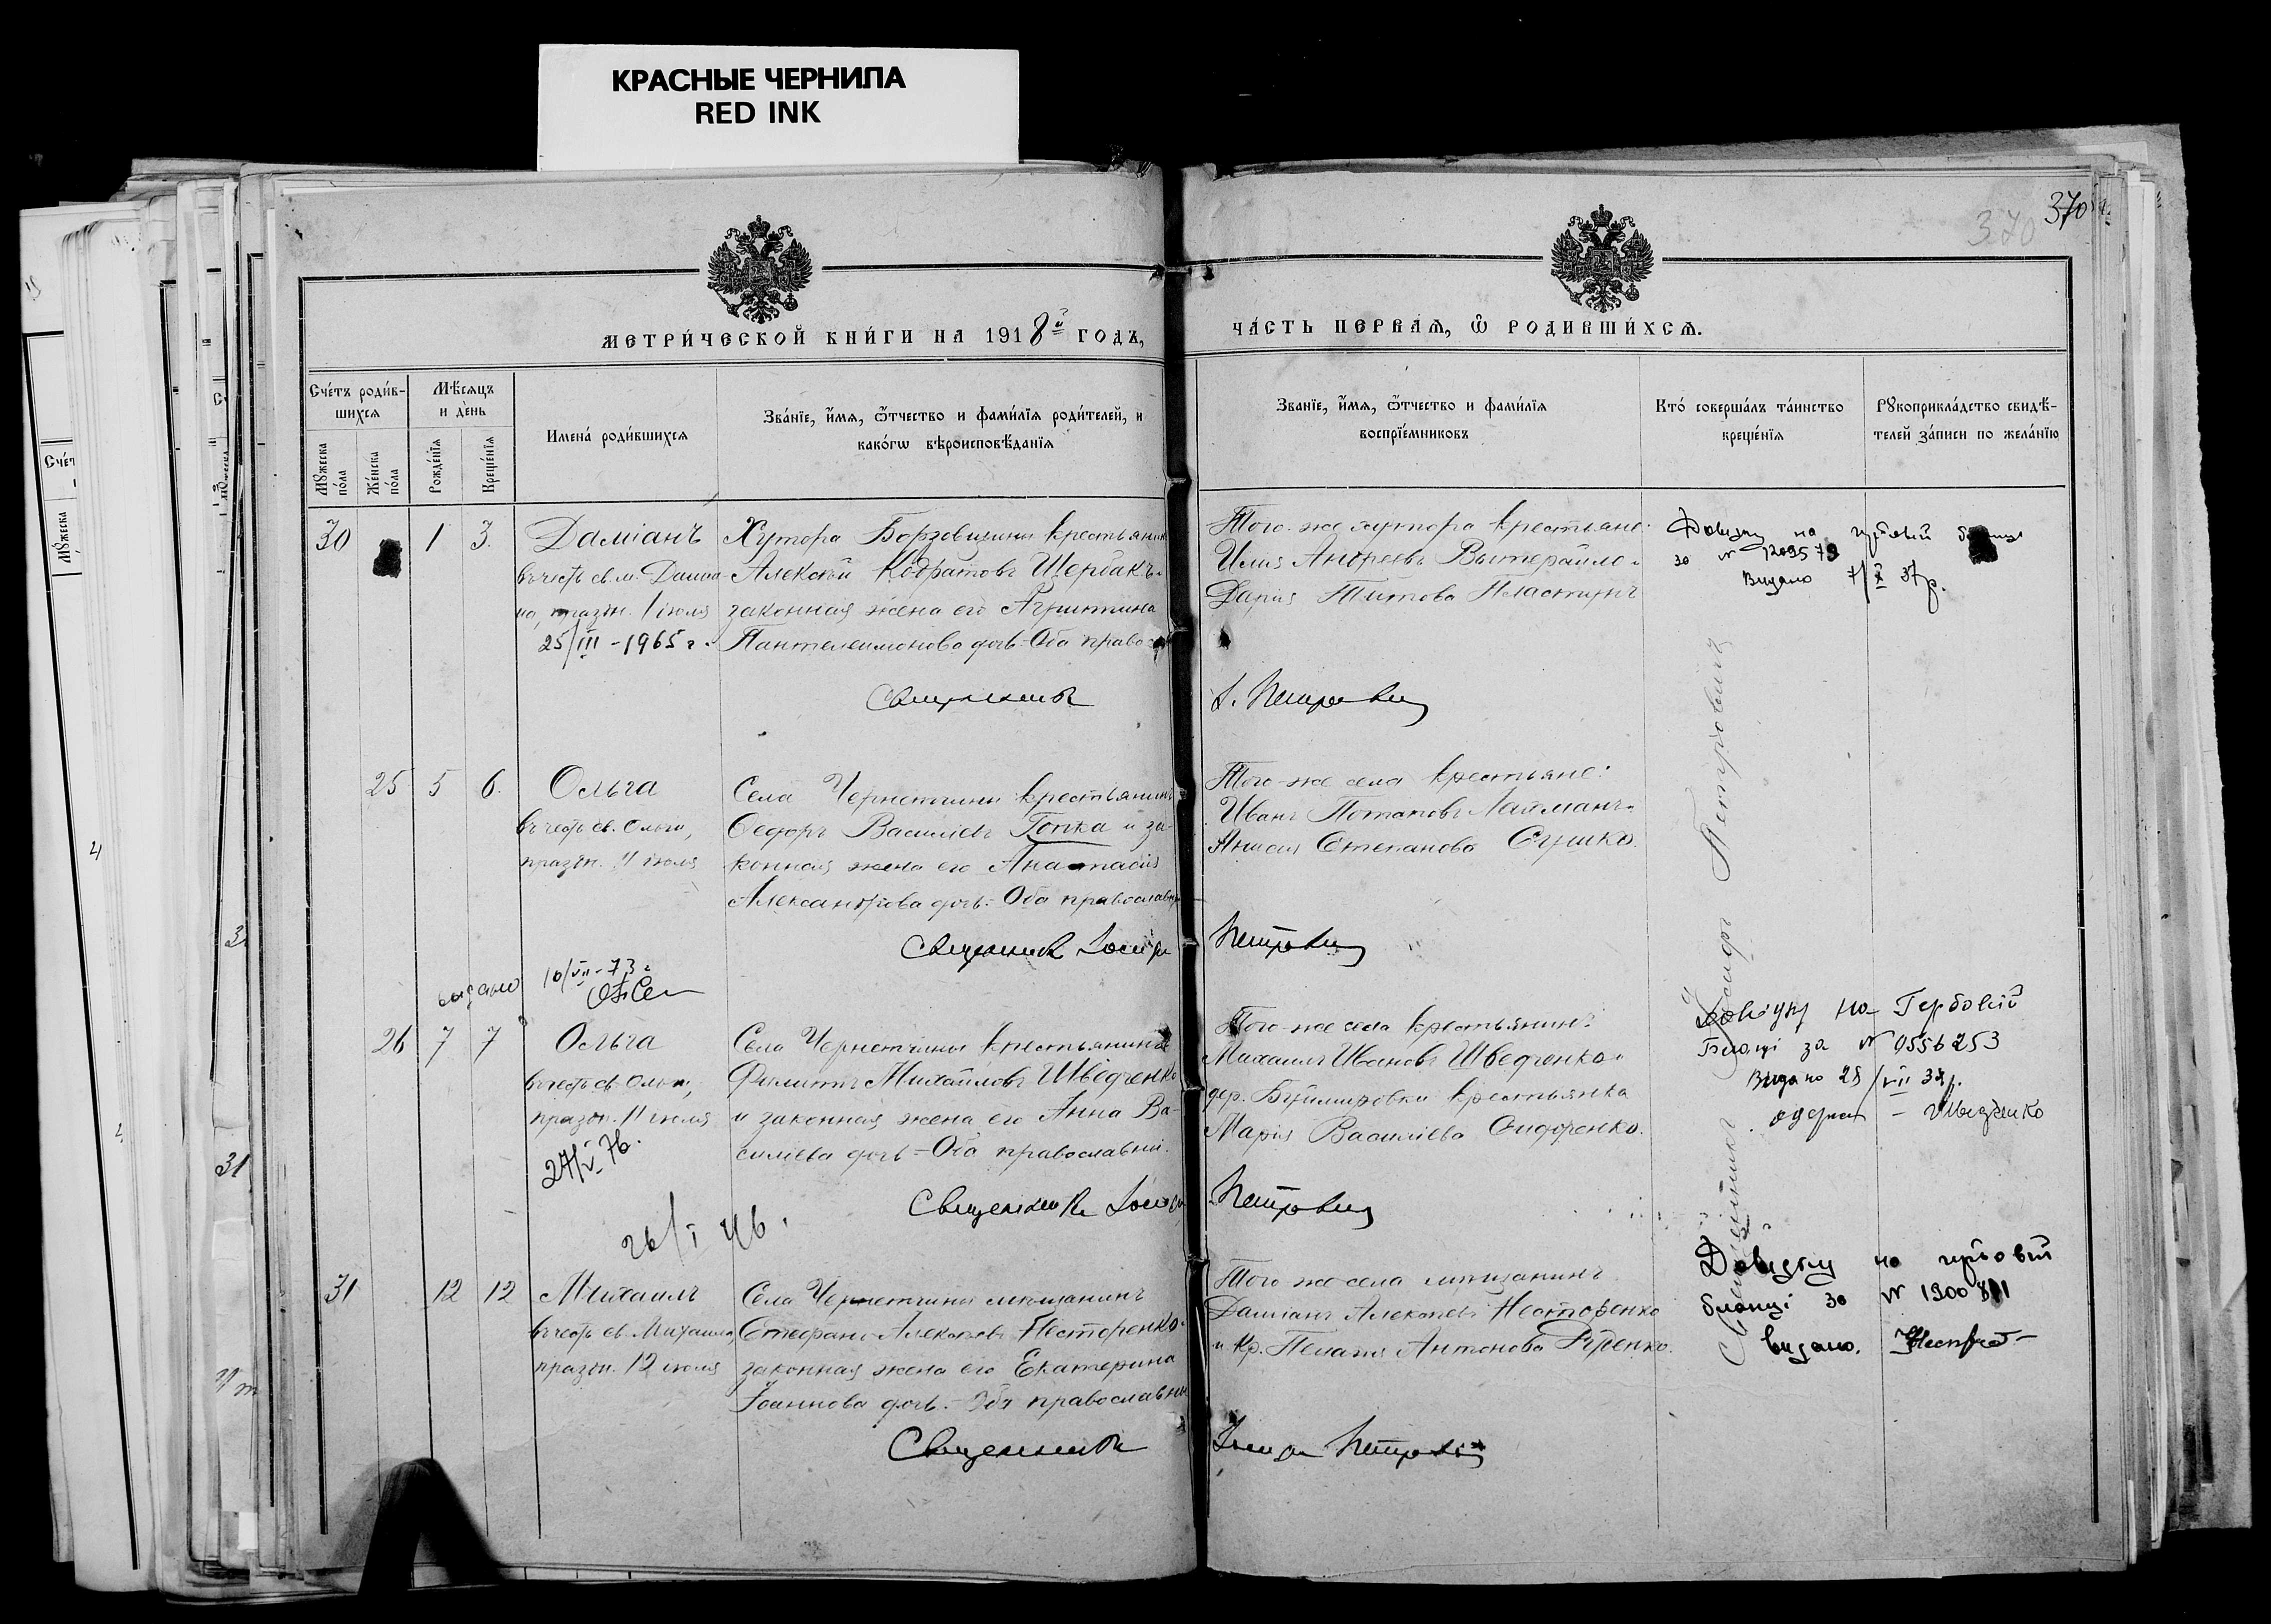 КРАСНЫЕ ЧЕРНИЛА
RED INK
370
370
МЕТРИ́ЧЕСКОЙ КНИ́ГИ НА 1918й ГОДЪ,
ЧА́СТЬ ПЕРВАѦ, Ѽ РОДИВШИ́ХСѦ.
Сче́тъ роди́в-
шихсѧ
Мѣ́сѧцъ
и де́нь
Мꙋ́жеска по́ла
Же́нска по́ла
Рожде́нїѧ
Креще́нїѧ
Имена̀ роди́вшихсѧ
Зва́нїе, и́мѧ, ѻ́тчество и фами́лїѧ роди́телей, и
како́гѡ вѣроисповѣ́данїѧ
Зва́нїе, и́мѧ, ѻ́тчество и фами́лїѧ
воспрїе́мниковъ
Кто̀ соверша́лъ та́инство
креще́нїѧ
Рꙋкоприкла́дство свидѣ́-
телей за́писи по жела́нїю
30 1 3. Даміанъ
въ честь св. м. Даміа-
на, празн. 1 іюля
25/III - 1965 г.
Хутора Борзовщины крестьянин
Алексѣй Кодратовъ Щербакъ
законная жена его Агриппина
Пантелеимонова дочь. Оба правос
Священникъ
Того-же хутора крестьяне:
Илія Андреевъ
Дарія Титова
І. Петрович
Довідку на гербовій бланці
за № 1209579
Видано 7/X 37 р.
25 5 6. Ольга
въ честь св. Ольги,
празн. 11 іюля
Села Чернетчины крестьянинъ
Ѳеодоръ Василіевъ Гопка и за-
конная жена его Анастасія
Александрова дочь. Оба православн
Священник Іосиф
Того-же села крестьяне:
Иванъ Потаповъ
Анисія Степанова Сушко.
Петрович
Священникъ Іосифъ Петровичъ
выдано 10/VII-73 г
26 7 7 Ольга
въ честь св. Ольги,
празн. 11 іюля
27/V 76.
Села Чернетчины крестьянинъ
Филиппъ Михайловъ Шведченко
и законная жена его Анна Ва-
силіева дочь - Оба православны.
Священник Іосиф
Того-же села крестьянинъ
Михаилъ Ивановъ Шведченко
дер. Буймировки крестьянка
Марія Василіева Сидоренко.
Петрович
Довідку на Гербовій
Бланці за № 0556253
Видано 28/VII 38 р.
одержал - Шведченко
26/I 46.
31 12 12 Михаилъ
въ честь св. Михаила,
празн. 12 іюля
Села Чернетчины мѣщанинъ
Стефанъ Алексѣевъ Несторенко
законная жена его Екатерина
Іоаннова дочь. Оба православны
Священник
Того-же села мѣщанинъ
Даміанъ Алексѣевъ Несторенко
и кр. Пелагія Антонова
Іосиф Петрович
Довідку на гербовій
бланці за №
видано.